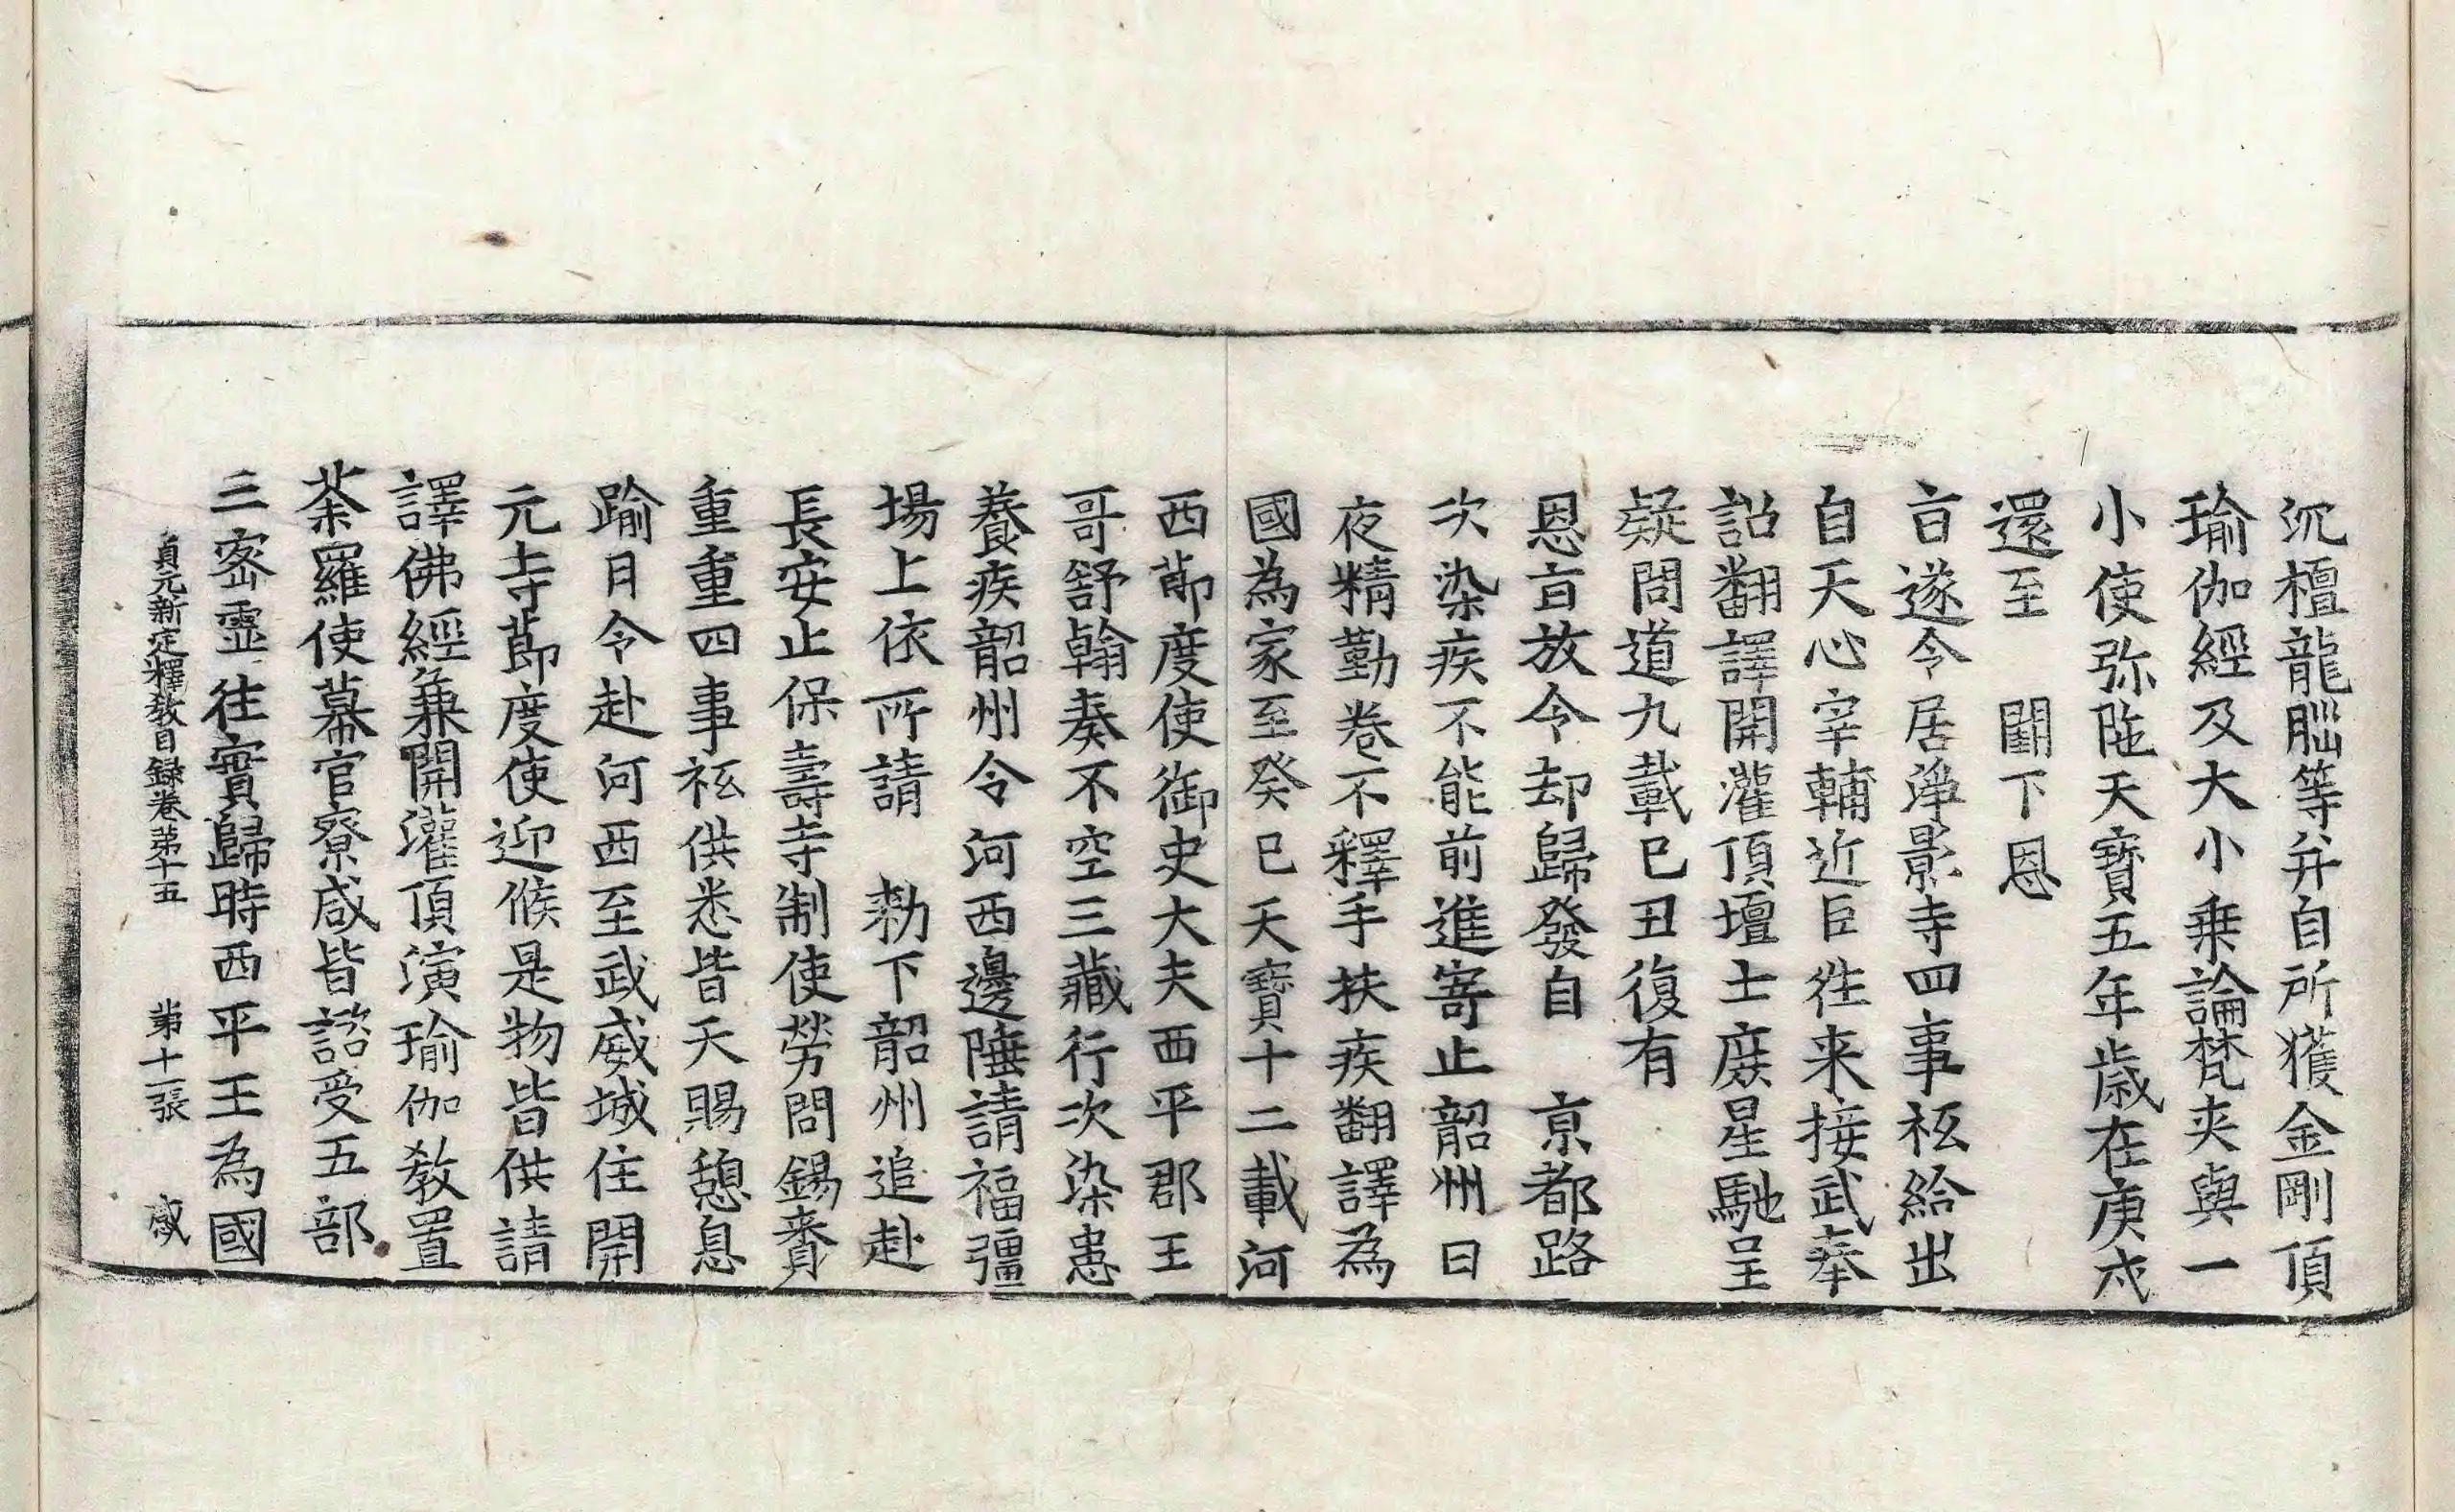 沉檀龍腦等并自所獲金剛頂
瑜伽經及大小乗論梵夾與一
小使弥陁天寶五年歲在庚戌
還至 闕下恩
㫖遂令居淨影寺四事祇給出
自天心宰輔近臣徃来接武奉
詔翻譯開灌頂壇士庻星馳呈
疑問道九載巳丑復有
恩㫖放令却歸發自 京都路
次染疾不能前進寄止韶州日
夜精勤卷不釋手扶疾翻譯為
國為家至癸巳天寶十二載河
西節度使御史大夫西平郡王
哥舒翰奏不空三藏行次染患
養疾韶州令河西邊陲請福彊
場上依所請 勑下韶州追赴
長安止保壽寺制使勞問錫賚
重重四事祇供悉皆天賜憩息
踰日令赴河西至武威城住開
元寺節度使迎候是物皆供請
譯佛經兼開灌頂演瑜伽教置
茶羅使幕官寮咸皆諮受五部
三密靈往實歸時西平王為國
貞元新定釋教目録卷第十五 第十一張 感